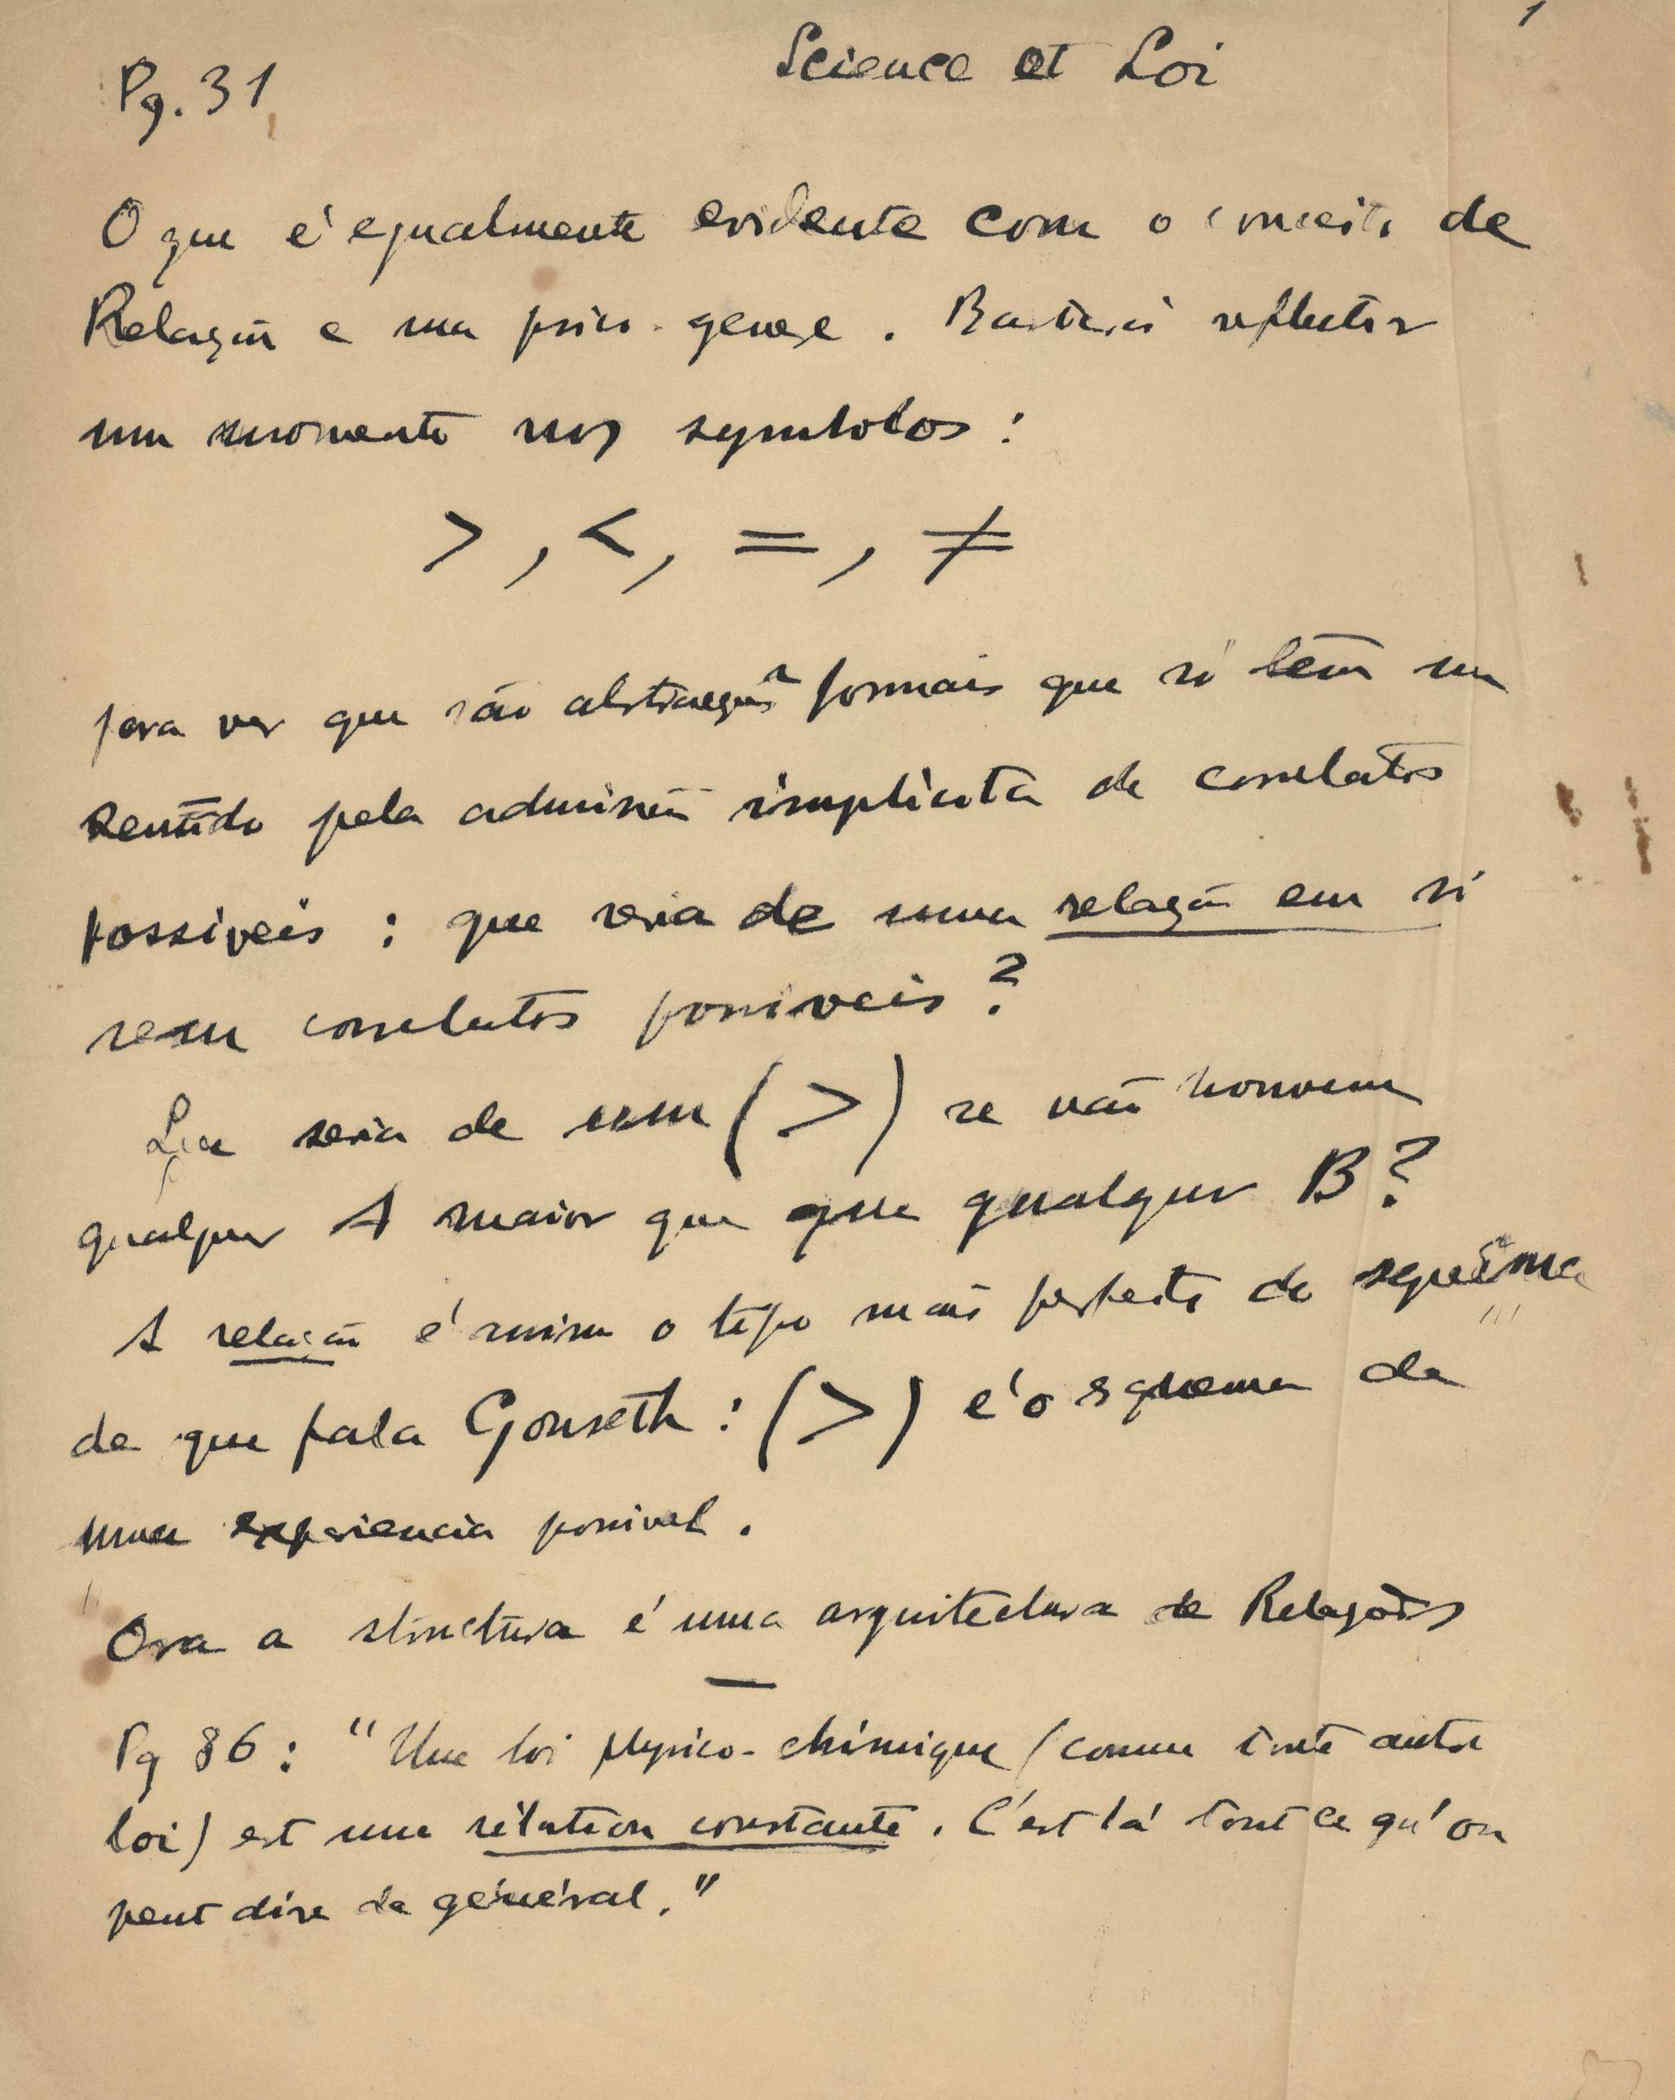 1
Science et Loi
Pg. 31
O que é egualmente evidente com o conceito de
Relação e sua psico-genese. Bastará reflectir
um momento nos symbolos:
> , < , = , ≠
para ver que são abstracções formais que só têm um
sentido pela admissão implicita de correlatos
possiveis : que seria de uma relação em si
sem correlatos possiveis ?
Que seria de um ( > ) se não houvesse
qualquer A maior que que qualquer B ?
A relação é assim o typo mais perfeito do
de que fala Gonseth : ( > ) é o squema de
uma experiencia possivel .
Ora a structura é uma arquitectura de Relações
Pg 86 : "Une loi physico-chimique (comme toute autre
loi) est une rélation constante. C'est là tout ce qu'on
peut dire de général."